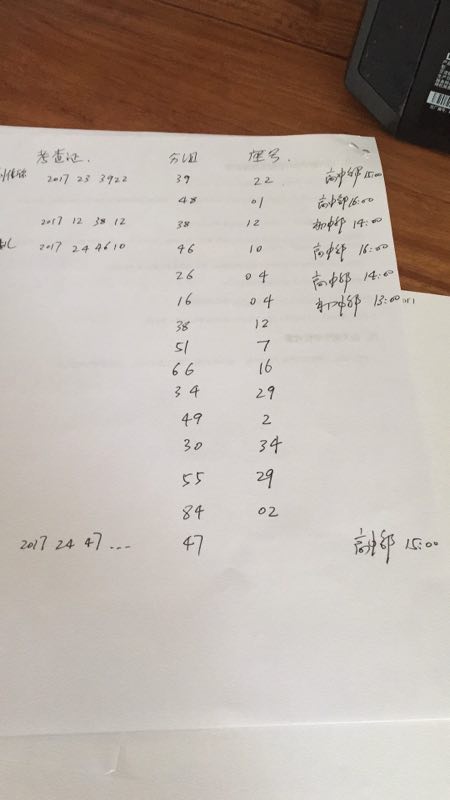 考查证. 分组 座号.
2017 23 3922 39 22 高中部 15:00
48 01 高中部 16:00
2017 12 38 12 38 12 初中部 14:00
2017 24 46 10 46 10 高中部 16:00
26 04 高中部 14:00
16 04 初中部 13:00
38 12
51 7
66 16
34 29
49 2
30 34
55 29
84 02
2017 24 47 ... 47 高中部 15:00